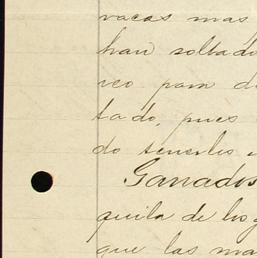 vacas mas
han soltado
reo para d
tado, pues
do tenerlos
Ganados
quila de hoy
que las ma